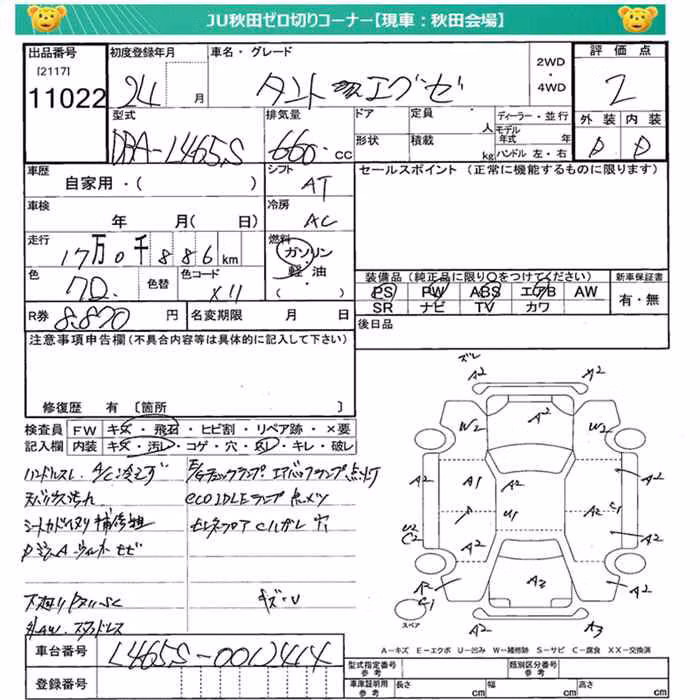 JU秋田ゼロ切りコーナー【現車：秋田会場】
出品番号 初度登録年月 車名・グレード 2WD・4WD 評価点
[2117]
11022 24 月 タント エグゼ 2
型式 排気量 ドア 定員 人 ディーラー・並行 外装 内装
DBA-L465S 660 cc 形状 積載 kg モデル年式 年 ハンドル 左・右 D D
車歴 シフト セールスポイント (正常に機能するものに限ります)
自家用・( ) AT
車検 冷房
年 月(日) AC
走行 燃料
17万0千886km ガソリン
軽・油
( )
色 色替 色コード
X11
装備品（純正品に限り○をつけてください） 新車保証書
PS PW ABS エアB AW 有・無
SR ナビ TV カワ
R券 8,870 円 名変期限 月 日
後日品
注意事項申告欄（不具合内容等は具体的に記入して下さい）
修復歴 有 〔箇所 〕
検査員記入欄 FW キズ・飛石・ヒビ割・リペア跡・×要
内装 キズ・汚レ・コゲ・穴・スレ・キレ・破レ
ハンドルスレ A/C冷えず
E/gチェックランプ エアバックランプ点灯
eco IDLEランプ点メツ
下廻り
キズ・U
ズレ
A2 A2
W2 A2 W2
A2 A1 A2 A2 A2
U1 A2 C1
U2 C2 A2 A2
A2 C1 A2 A2
A2 A3
スペア
A－キズ E－エクボ U－凹み W－補修跡 S－サビ C－腐食 XX－交換済
車台番号 L465S-0012414
登録番号
型式指定番号 参考 類別区分番号 参考
車庫証明用 参考 長さ cm 幅 cm 高さ cm